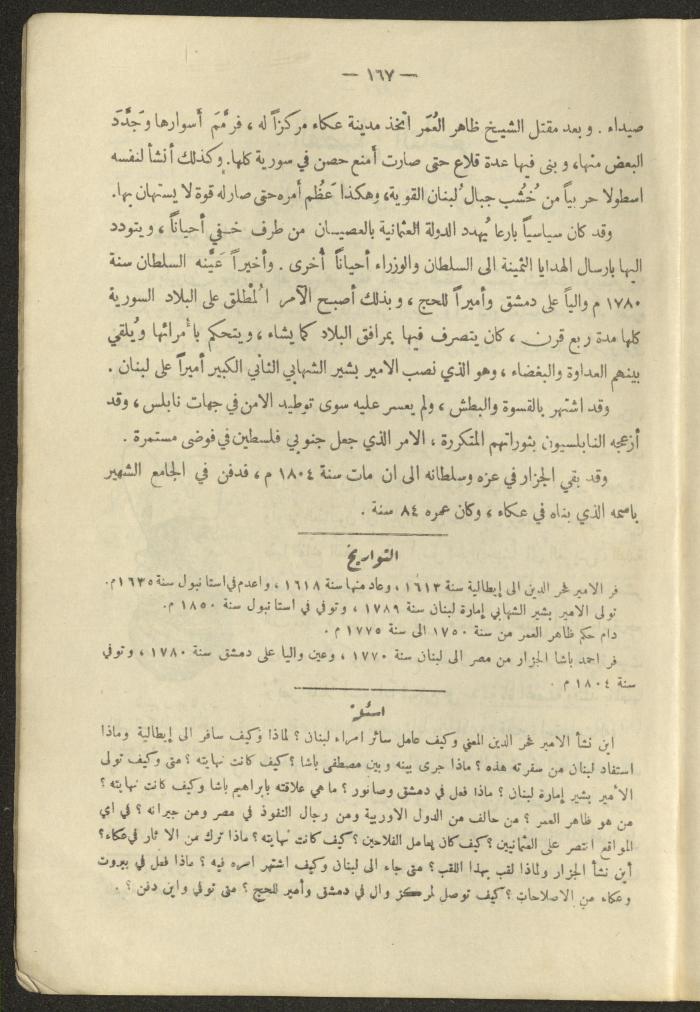 — ١٦٧ —
صيداء . وبعد مقتل الشيخ ظاهر العُمَر اتخذ مدينة عكاء مركزاً له ، فرمَّمَ أسوارها وجَدَّدَ
البعض منها، وبنى فيها عدة قلاع حتى صارت أمنع حصن في سورية كلها. وكذلك أنشأ لنفسه
اسطولا حربياً من خُشُب جبال لُبنان القوية، وهكذا عَظُم أمره حتى صار له قوة لا يستهان بها.
وقد كان سياسياً بارعا يُهدد الدولة العثمانية بالعصيان من طرف خفي أحياناً ، ويتودد
اليها بارسال الهدايا الثمينة الى السلطان والوزراء أحياناً أُخرى . وأخيراً عَيَّنه السلطان سنة
١٧٨٠ م والياً على دمشق وأميراً للحج ، وبذلك أصبح الآمر المُطْلق على البلاد السورية
كلها مدة ربع قرن ، كان يتصرف فيها بمرافق البلاد كما يشاء ، ويتحكم بأُمرائها ويُلقي
بينهم العداوة والبغضاء ، وهو الذي نصب الامير بشير الشهابي الثاني الكبير أميراً على لبنان .
وقد اشتهر بالقسوة والبطش ، ولم يعسر عليه سوى توطيد الامن في جهات نابلس ، وقد
أزعجه النابلسيون بثوراتهم المتكررة ، الامر الذي جعل جنوبي فلسطين في فوضى مستمرة .
وقد بقي الجزار في عزه وسلطانه الى ان مات سنة ١٨٠٤ م ، فدفن في الجامع الشهير
باسمه الذي بناه في عكاء ، وكان عمره ٨٤ سنة .
التواريخ
فر الامير فخر الدين الى إيطالية سنة ١٦١٣ ، وعاد منها سنة ١٦١٨ ، واعدم في استانبول سنة ١٦٣٥م.
تولى الامير بشير الشهابي إمارة لبنان سنة ١٧٨٩ ، وتوفي في استانبول سنة ١٨٥٠ م.
دام حكم ظاهر العمر من سنة ١٧٥٠ الى سنة ١٧٧٥ م .
فر احمد باشا الجزار من مصر الى لبنان سنة ١٧٧٠ ، وعين واليا على دمشق سنة ١٧٨٠ ، وتوفي
سنة ١٨٠٤ م .
اسئلة
اين نشأ الامير فخر الدين المعني وكيف عامل سائر امراء لبنان ؟ لماذا وكيف سافر الى إيطالية وماذا
استفاد لبنان من سفرته هذه ؟ ماذا جرى بينه وبين مصطفى باشا ؟ كيف كانت نهايته ؟ متى وكيف تولى
الأمير بشير إمارة لبنان ؟ ماذا فعل في دمشق وصانور ؟ ما هي علاقته بابراهيم باشا وكيف كانت نهايته ؟
من هو ظاهر العمر ؟ من حالف من الدول الاوربية ومن رجال النفوذ في مصر ومن جيرانه ؟ في اي
المواقع انتصر على العثمانيين ؟ كيف كان يعامل الفلاحين ؟ كيف كانت نهايته ؟ ماذا ترك من الآثار في عكاء؟
أين نشأ الجزار ولماذا لقب بهذا اللقب؟ متى جاء الى لبنان وكيف اشتهر امره فيه ؟ ماذا فعل في بيروت
وعكاء من الاصلاحات ؟ كيف توصل لمركز وال في دمشق وأمير للحج ؟ متى توفي واين دفن ؟ .